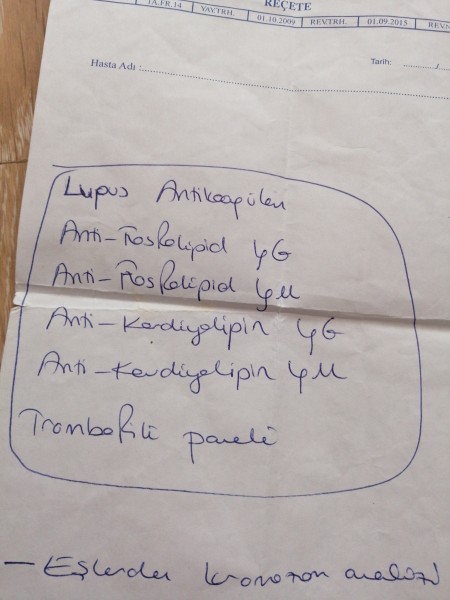 REÇETE
TA.FR.14 YAY.TRH. 01.10.2009 REV.TRH. 01.09.2015 REV.N
Hasta Adı :
Tarih: ............/
Lupus Antikoagülan
Anti-Fosfolipid IgG
Anti-Fosfolipid IgM
Anti-Kardiyolipin IgG
Anti-Kardiyolipin IgM
Trombofili paneli
— Eşlerden kromozom analizi